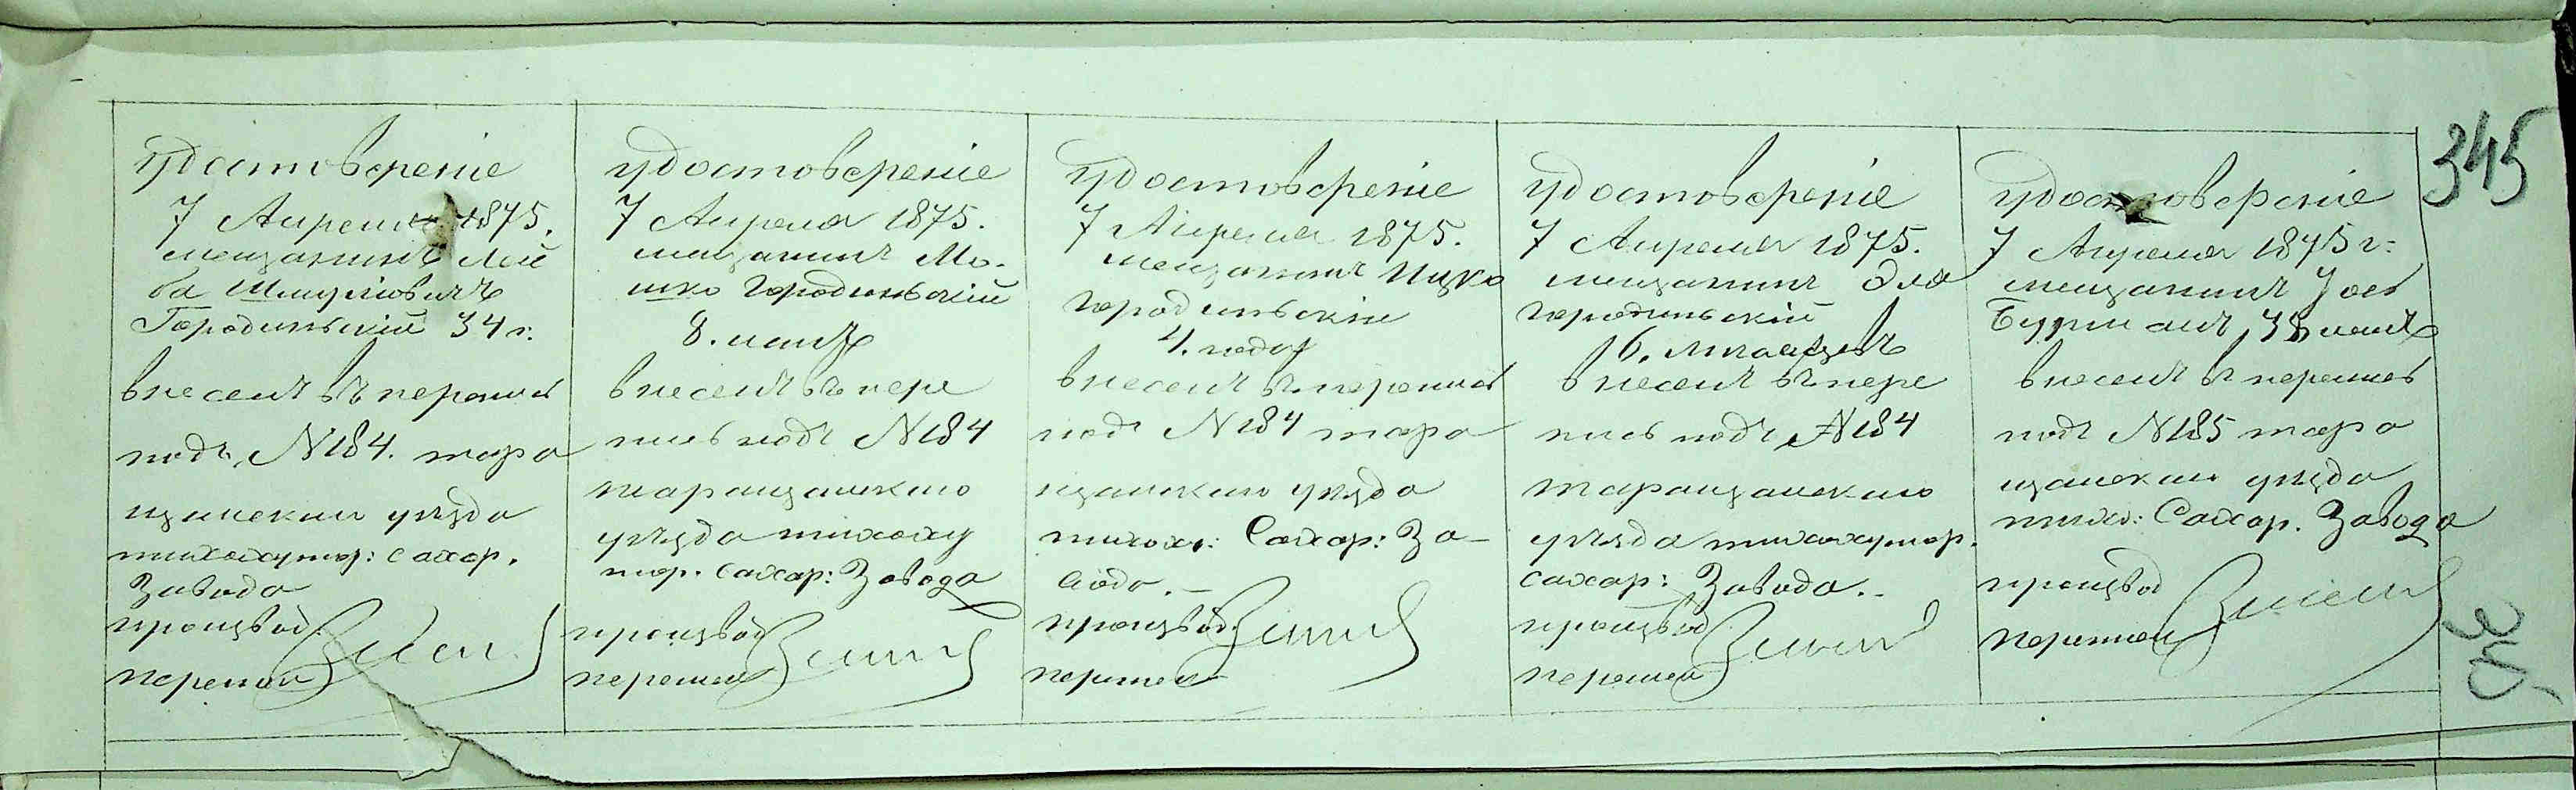 удостоверение
7 Апреля 1875.
мещанинъ Лей
ба Шмулiовичъ
Городинскiй 34 г:
внесенъ въ перепись
подъ N184. тара
щанскаго уѣзда
тихохутор: сахар.
Завода
производ
перепись
удостоверенiе
7 Апреля 1875.
мещанинъ Мо-
шко Городинскiй
8. лѣтъ
внесенъ въ пере
пись подъ N184
таращанскаго
уѣзда тихоху
тор. сахар: Завода
производ
перепись
удостоверенiе
7 Апреля 1875.
мещанинъ Ицко
городинскiй
4. года
внесенъ въ перепись
подъ N184 тара
щанскаго уѣзда
тихох: Сахар: За-
вода.-
производ
перепись
удостоверенiе
7 Апреля 1875.
мещанинъ Эля
городинскiй
6. мѣсяцевъ
внесенъ въ пере
пись подъ N184
таращанскаго
уѣзда тихохутор.
сахар: Завода.-
производ
перепись
удостоверенiе
7 Апреля 1875 г:
мещанинъ
38 лѣтъ
внесенъ въ перепись
подъ N185 тара
щанскаго уѣзда
тихо: Сахар. Завода
производ
перепись
345